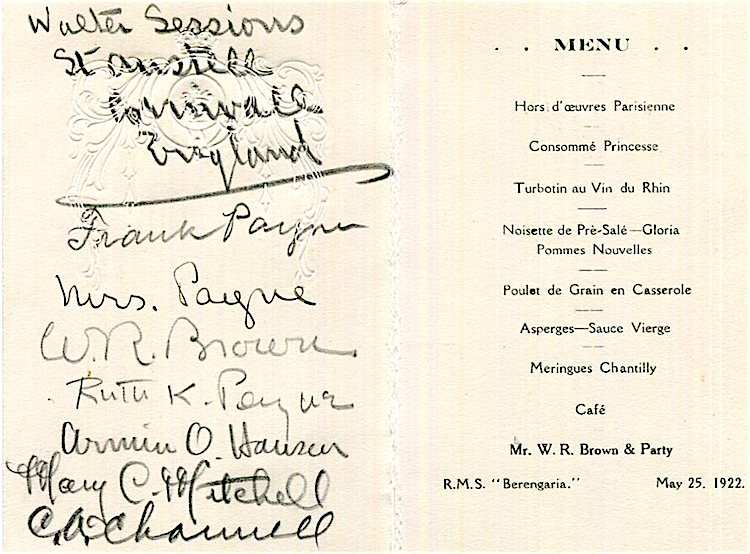 Walter Sessions
St Austell
Cornwall
England
Frank Payne
Mrs. Payne
W. R. Brown
Ruth K. Payne
Armin O. Hansen
Mary C. Mitchell
C. A. Channell
. . MENU . .
Hors d'œuvres Parisienne
Consommé Princesse
Turbotin au Vin du Rhin
Noisette de Prè-Salé—Gloria
Pommes Nouvelles
Poulet de Grain en Casserole
Asperges—Sauce Vierge
Meringues Chantilly
Café
Mr. W. R. Brown & Party
R.M.S. "Berengaria." May 25. 1922.